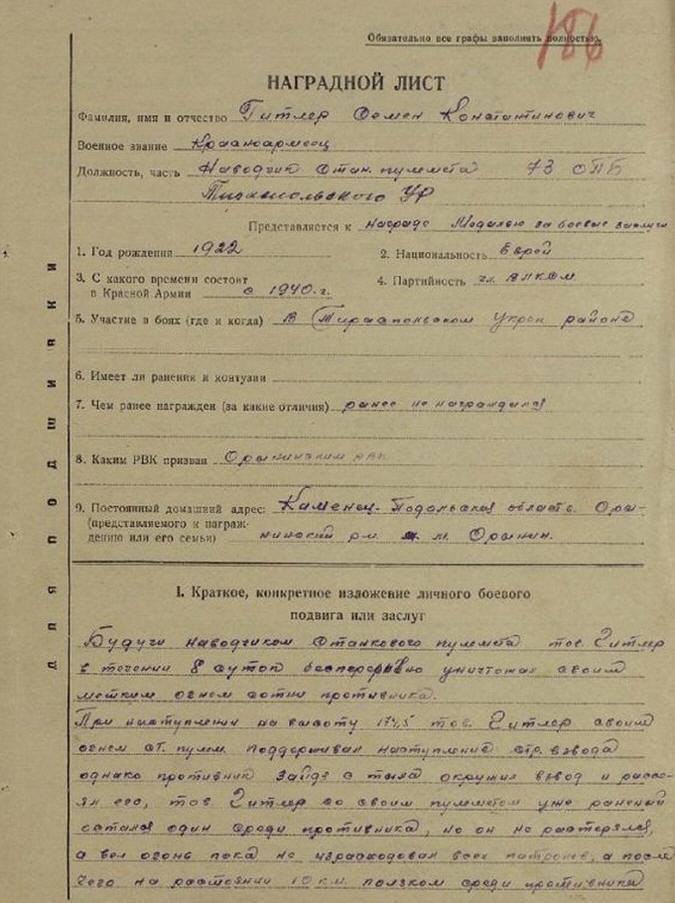 186
Обязательно все графы заполнять полностью.
НАГРАДНОЙ ЛИСТ
Фамилия, имя и отчество Гитлер Семен Константинович
Военное звание Красноармеец
Должность, часть Наводчик Станк. пулемета 73 ОПБ
Тираспольского УР
Представляется к награде Медалью за боевые заслуги
1. Год рождения 1922 2. Национальность Еврей
3. С какого времени состоит
в Красной Армии с 1940 г. 4. Партийность чл. ВЛКСМ
5. Участие в боях (где и когда) В Тираспольском Укреп районе
6. Имеет ли ранения и контузии
7. Чем ранее награжден (за какие отличия) ранее не награждался
8. Каким РВК призван Орынинским РВК
9. Постоянный домашний адрес: Каменец-Подольская область Оры-
(представляемого к награж-
дению или его семьи) нинский р-н м. Орынин.
I. Краткое, конкретное изложение личного боевого
подвига или заслуг
Будучи наводчиком Станкового пулемета тов. Гитлер
в течении 8 суток беспрерывно уничтожал своим
метким огнем сотни противника.
При наступлении на высоту 174,5 тов. Гитлер своим
огнем ст. пулем. поддерживал наступление стр. взвода
однако противник зайдя с тыла окружил взвод и рассе-
ял его, тов. Гитлер со своим пулеметом уже раненый
остался один среди противника, но он не растерялся,
а вел огонь пока не израсходовал всех патронов, а после
чего на расстоянии 10 км. ползком среди противника
для подшивки